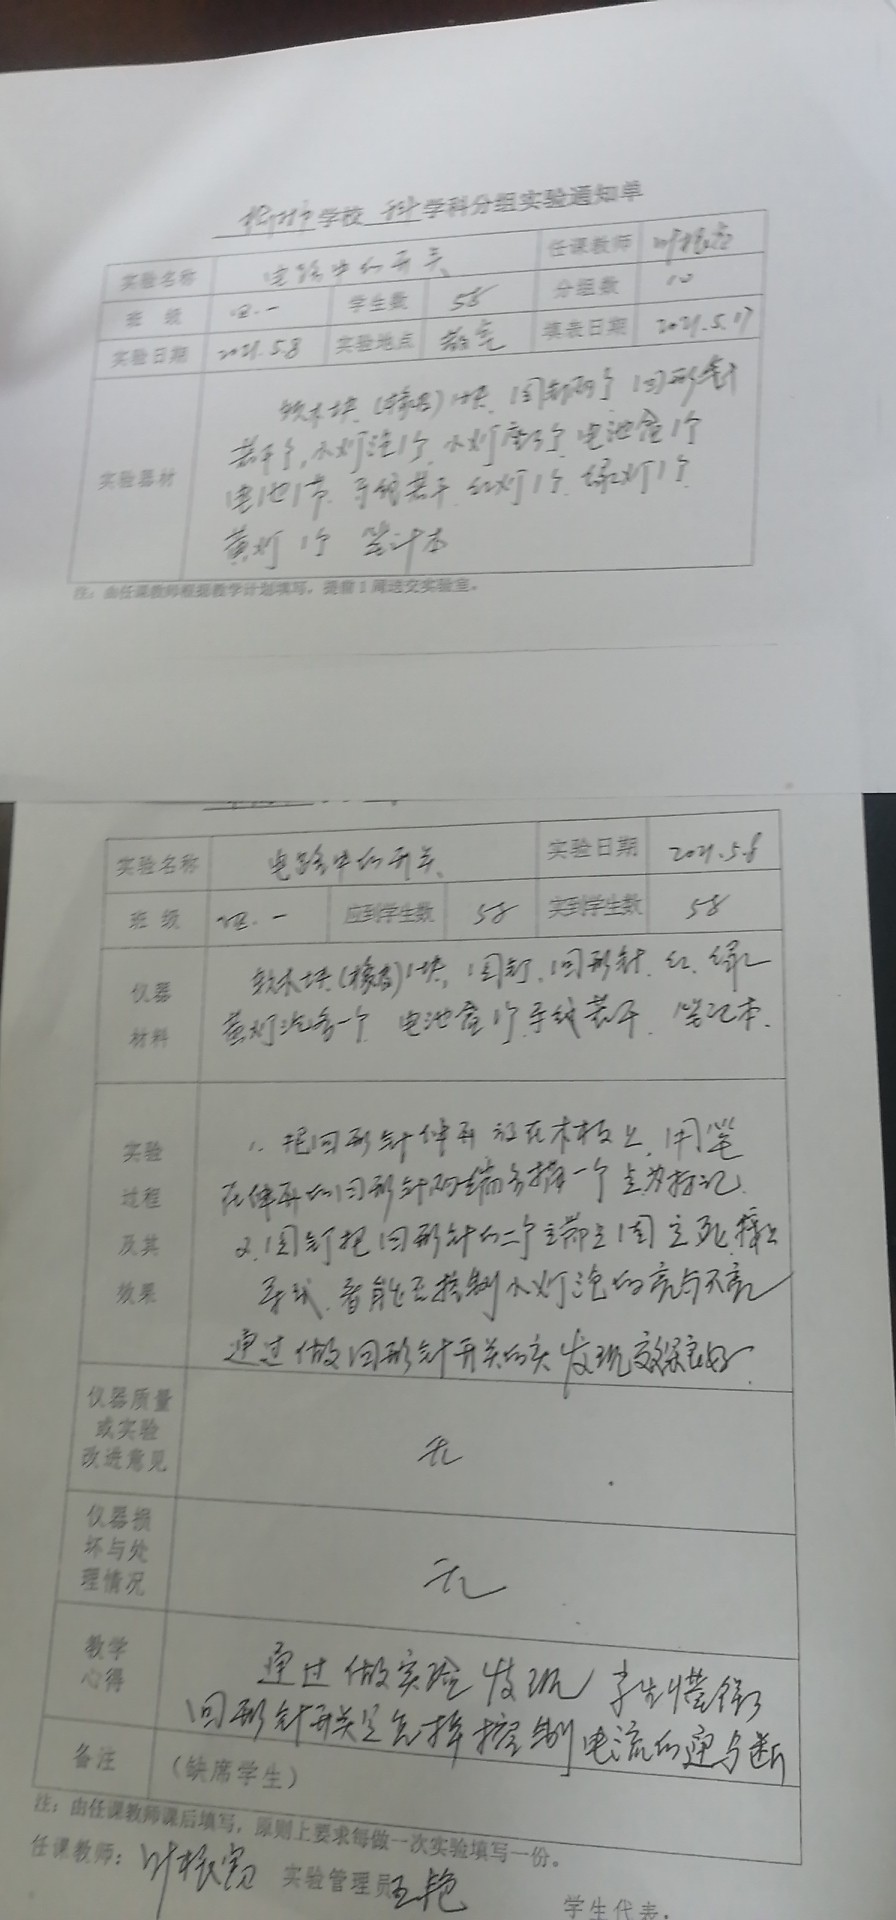 学校 科 学科分组实验通知单
实验名称 电路中的开关 任课教师
班 级 四.一 学生数 58 分组数 10
实验日期 2021.5.8 实验地点 教室 填表日期 2021.5.17
实验器材
软木块(橡皮)1块 图钉两个 回形针
若干个,小灯泡1个 小灯座3个 电池盒1个
电池1节 导线若干 红灯1个 绿灯1个
黄灯1个 笔记本
注:由任课教师根据教学计划填写,提前1周送交实验室。
实验名称 电路中的开关 实验日期 2021.5.8
班 级 四.一 应到学生数 58 实到学生数 58
仪器材料
软木块(橡皮)1块,图钉,回形针 红 绿
黄灯泡各一个 电池盒1个 导线若干 笔记本.
实验过程及其效果
1. 把回形针伸开放在木板上,用笔
在伸开的回形针两端各择一个点为标记
2.图钉把回形针的二个端点固定死 接上
导线,看能否控制小灯泡的亮与不亮
通过做回形针开关的实 发现效果良好.
仪器质量或实验改进意见 无
仪器损坏与处理情况 无
教学心得
通过做实验发现 学生懂得了
回形针开关是怎样控制电流的通与断
备注 (缺席学生)
注:由任课教师课后填写,原则上要求每做一次实验填写一份。
任课教师: 实验管理员 王艳 学生代表: